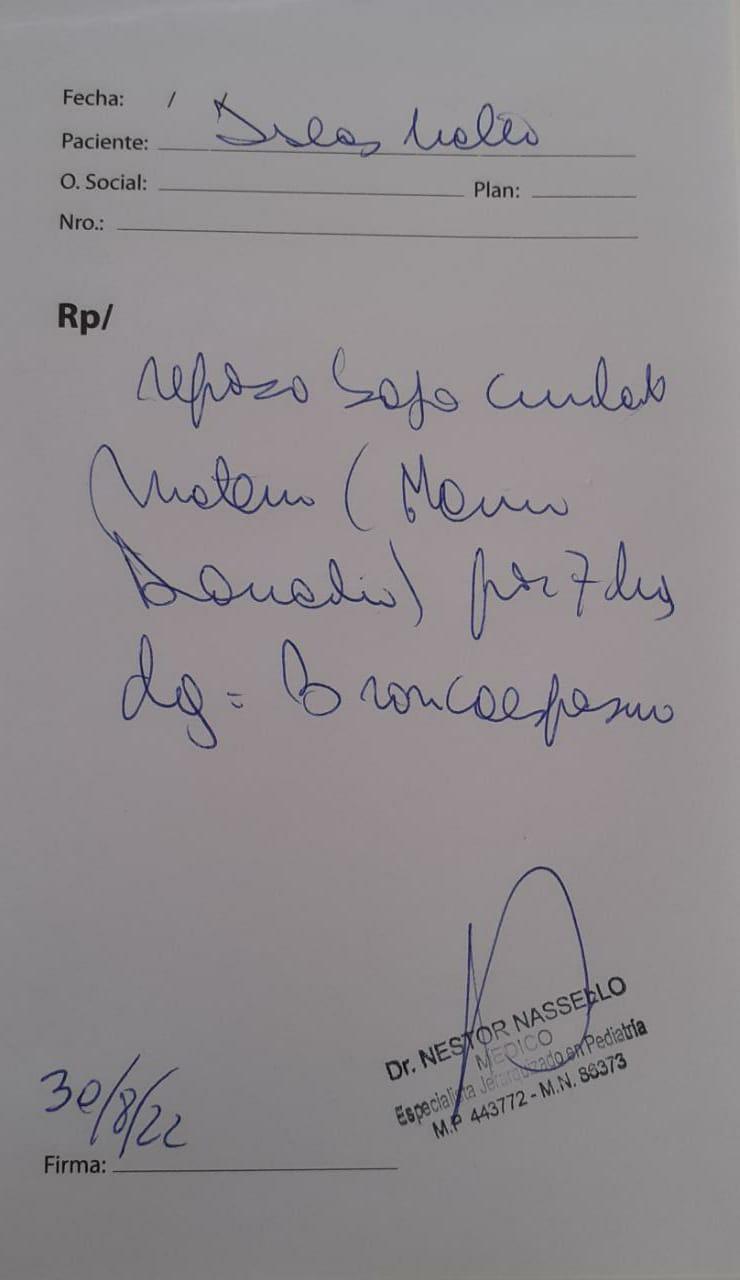 Fecha: /
Paciente:
O. Social: Plan:
Nro.:
Rp/
reposo bajo cuidado
materno (
Donadio) por 7 días
dg = Broncoespasmo
Dr. NESTOR NASSELLO
MEDICO
Especialista Jerarquizado en Pediatria
M.P 443772 - M.N. 86373
30/8/22
Firma: